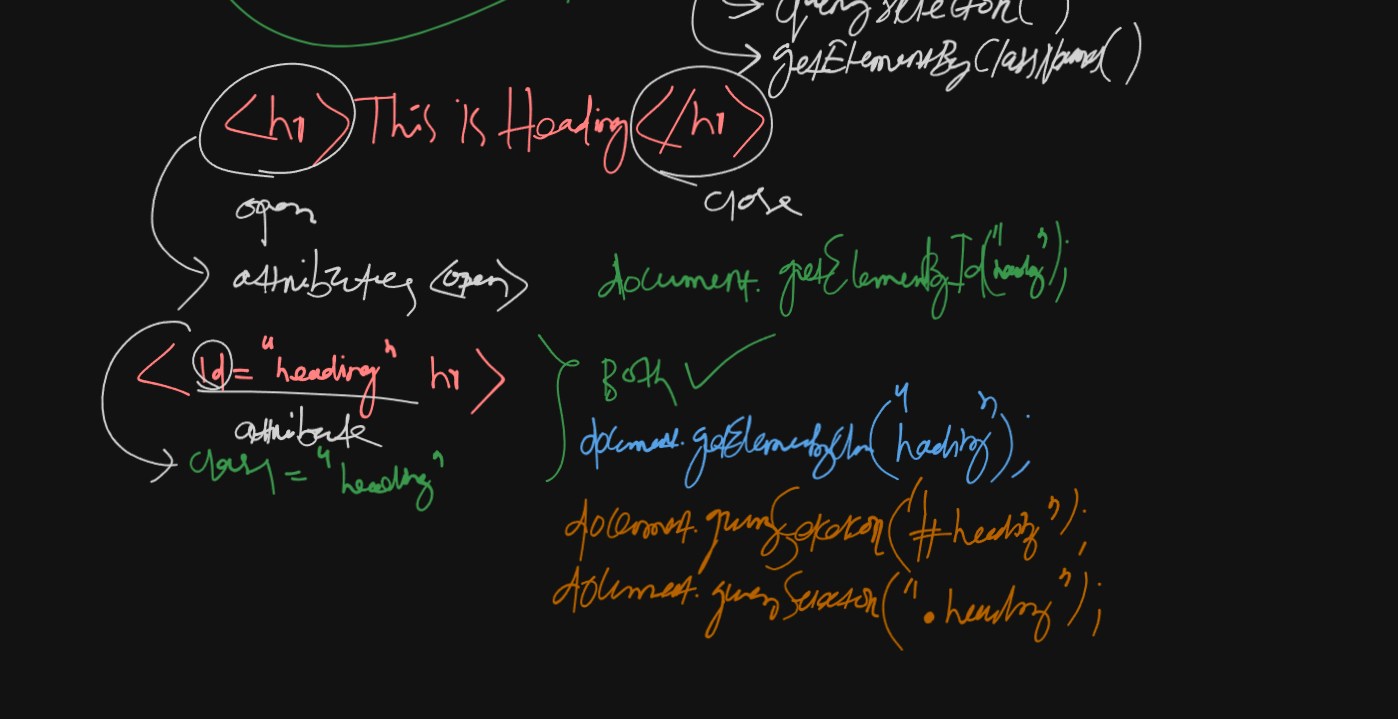 querySelector()
getElementByClassName()
<h1> This is Heading </h1>
open
close
attributes <open>
document.getElementById("heading");
< id = "heading" h1 >
Both ✓
attribute
document.getElementByClass("heading");
class = "heading"
document.querySelector("#heading");
document.querySelector(".heading");